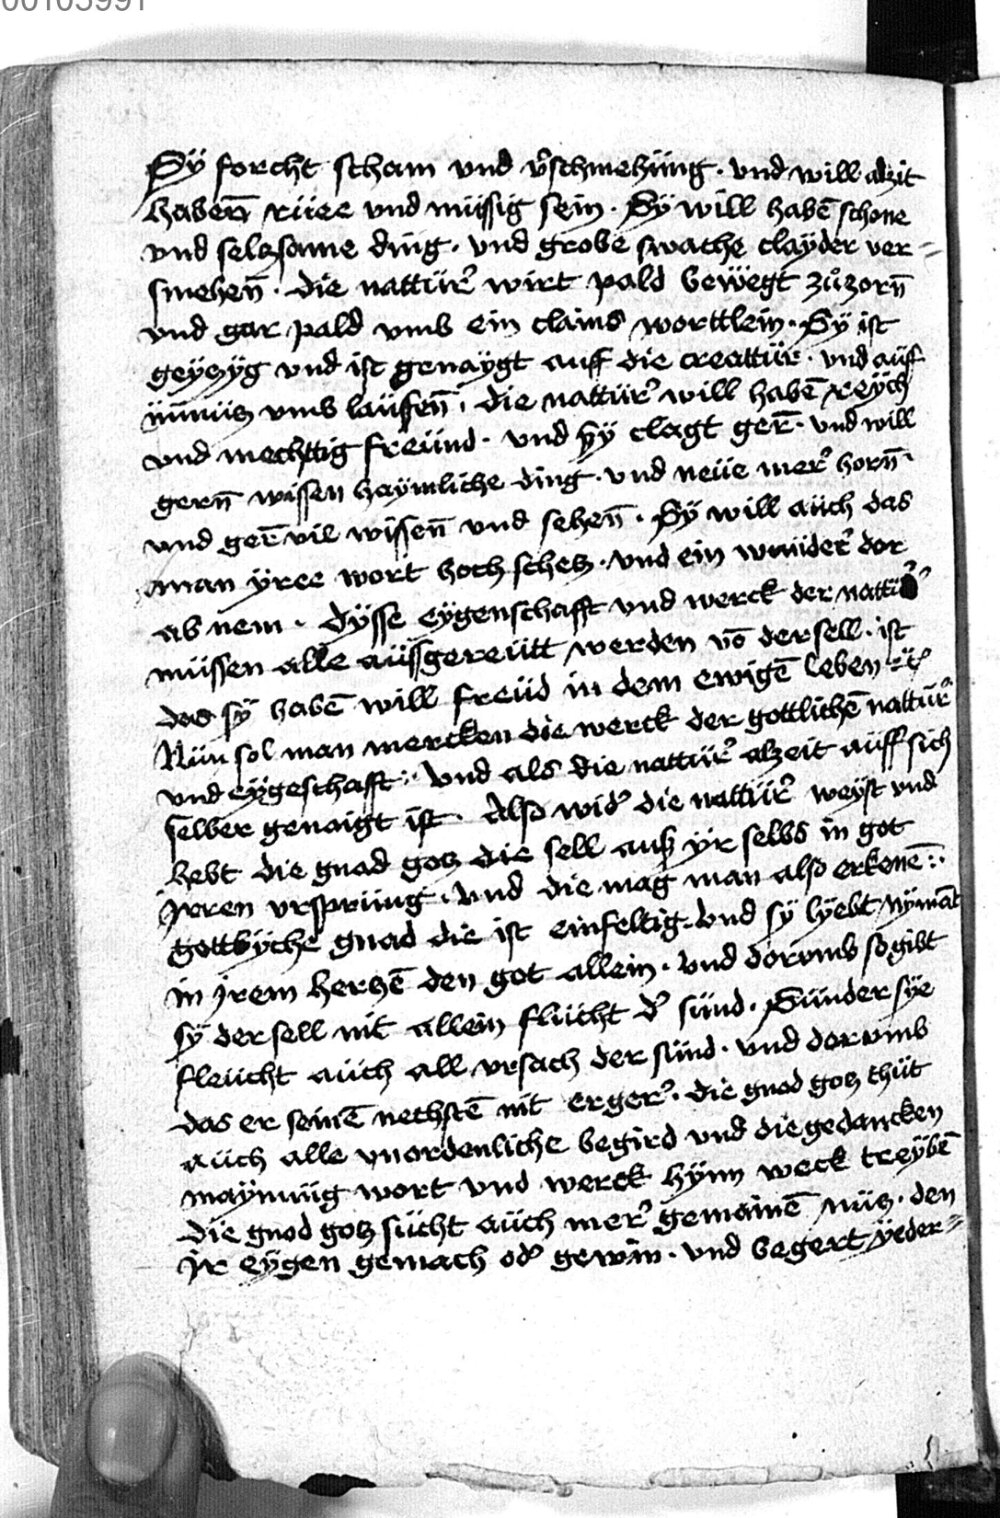 00103991
Sÿ forcht scham vnd v̉schmehüng · vnd will alzit
haben̄ rüee vnd müssig sein · Sÿ will habē schone
vnd selczsame ding · vnd grobe swache claÿder ver=
smehen̄ · die nattür̉ wirt pald bewegt zůzorn̄
vnd gar pald vmb ein clains worttlein · Sÿ ist
geÿczÿg vnd ist genaÿgt auff die creattür · vnd aüf
vmb laüffen̄ · die nattür̉ will habē reÿch
vnd mechttig freünd · vnd sÿ clagt ger̄ · vnd will
gern̄ wissen haÿmliche ding · vnd neüe mer̉ horn̄
vnd ger̄ vil wissen̄ vnd sehen̄ · Sÿ will aüch das
man ÿree wort hoch schecz · vnd ein wunder̉ dor
ab nem · dÿsse eÿgenschafft vnd werck der
müssen alle aüssgereütt werden vō der sell · ist
das sÿ habē will freüd in dem ewigē leben
Nün sol man mercken die werck der gottlichē nattür̉
vnd eÿgeschafft : vnd als die nattür̉ alzeit aüff sich
selber genaigt ist · Also wid̉ die nattür̉ weÿst vnd
hebt die gnad gocz die sell auß ÿr selbs in got
jrren vrsprüng · vnd die mag man also erkenē :
gottlÿche gnad die ist einfeltig · vnd sÿ lÿebt nÿmāt
in jrem herczē den got allein · vnd dorvmb so gibt
sÿ der sell nit allein flücht d̉ sünd · Sünder sÿe
fleücht aüch all vrsach der sünd · vnd dorvmb
das er seinē nechstē nit erger̉ · die gnad gocz thüt
aüch alle vnordenliche begird vnd die gedancken
maÿnüng wort vnd werck hÿnn weck treÿbē
die gnod gocz sücht aüch mer̉ gemainē nücz · den
jr eÿgen gemach od̉ gewin · vnd begert ÿeder=